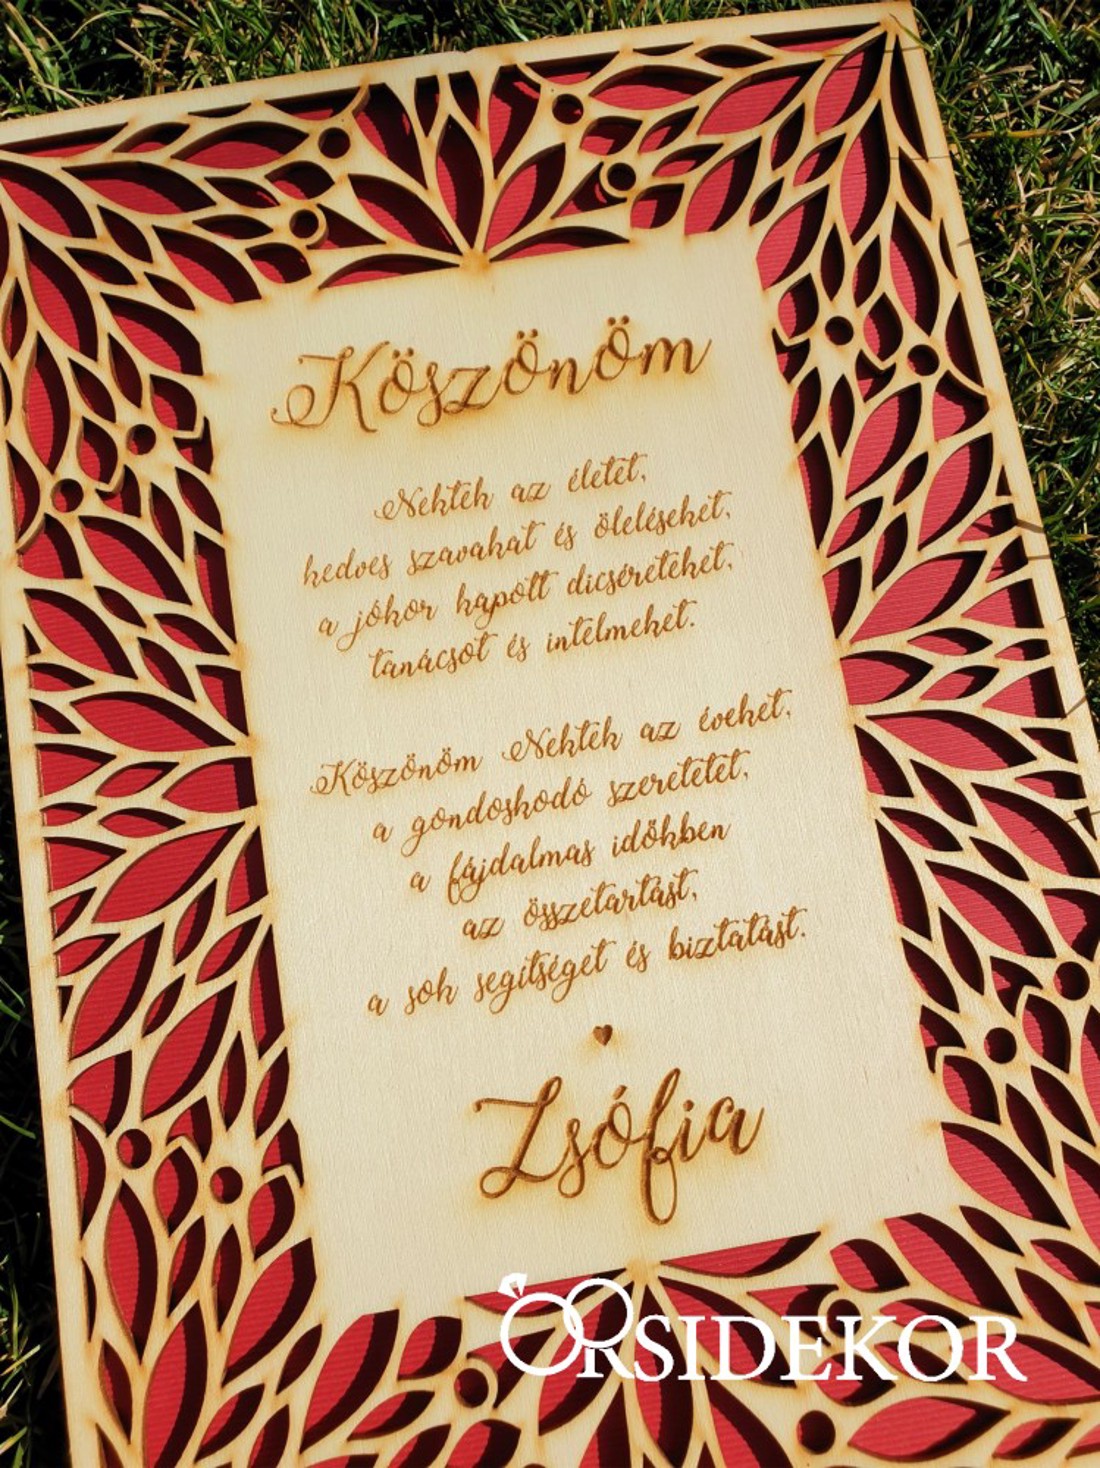 Köszönöm
Nektek az életet,
kedves szavakat és öleléseket,
a jókor kapott dicséreteket,
tanácsot és intelmeket.
Köszönöm Nektek az éveket,
a gondoskodó szeretetet,
a fájdalmas időkben
az összetartást,
a sok segítséget és biztatást.
Zsófia
ORSIDEKOR